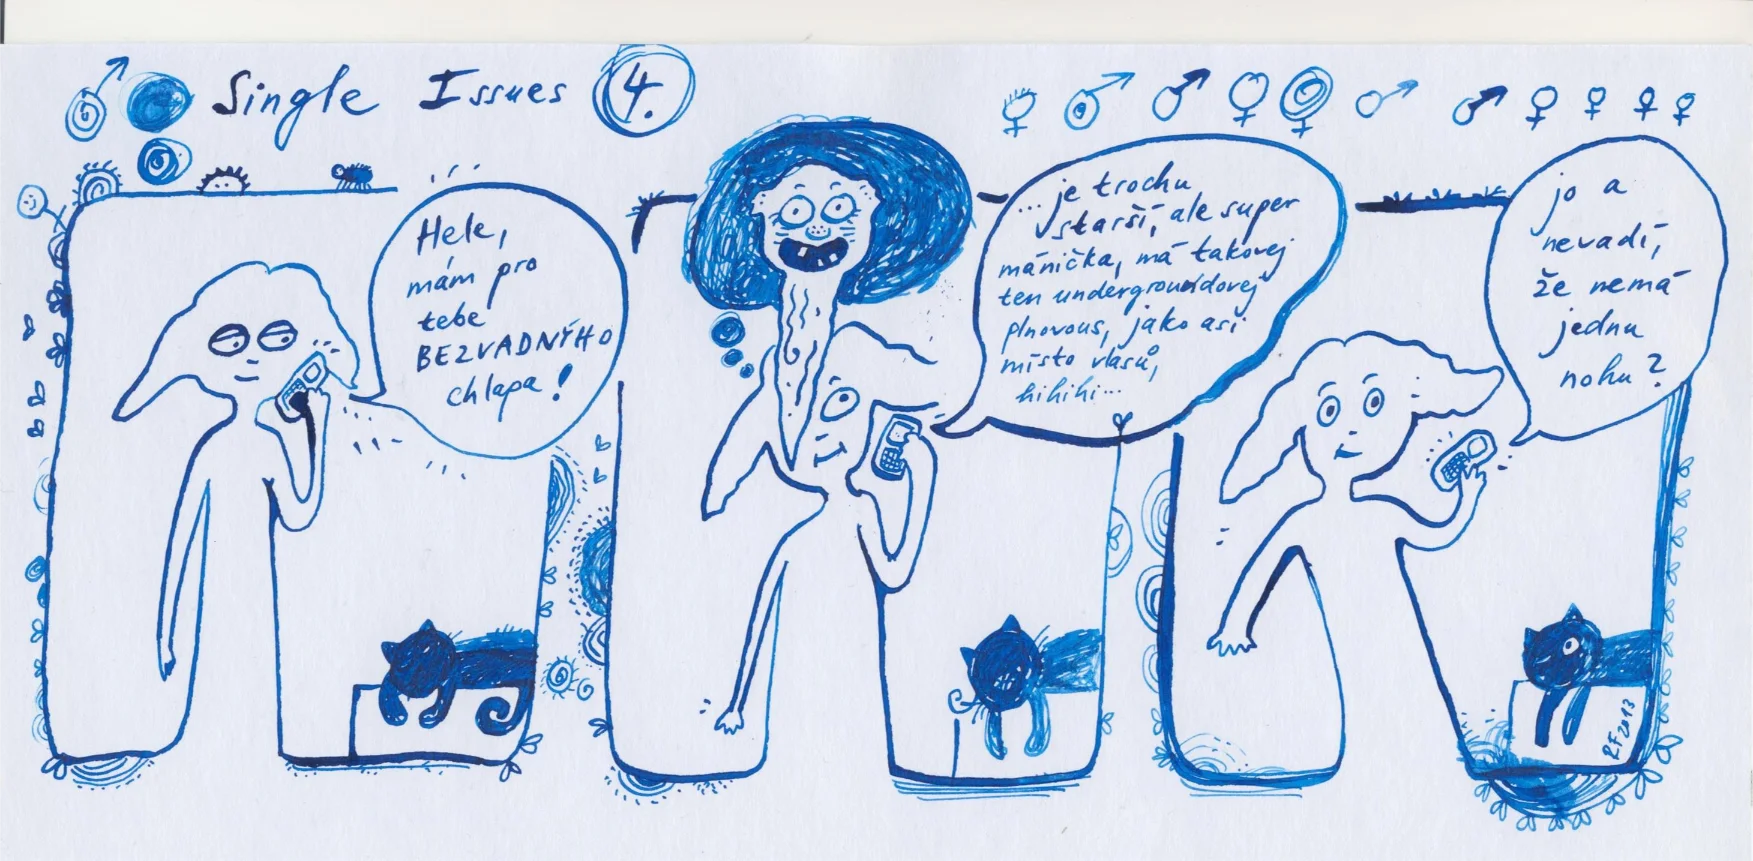 Single Issues 4.
Hele,
mám pro
tebe
BEZVADNÝHO
chlapa!
...je trochu
starší, ale super
mánička, má takovej
ten undergroundovej
plnovous, jako asi
místo vlasů,
hihihi...
jo a
nevadí,
že nemá
jednu
nohu?
RF 2013